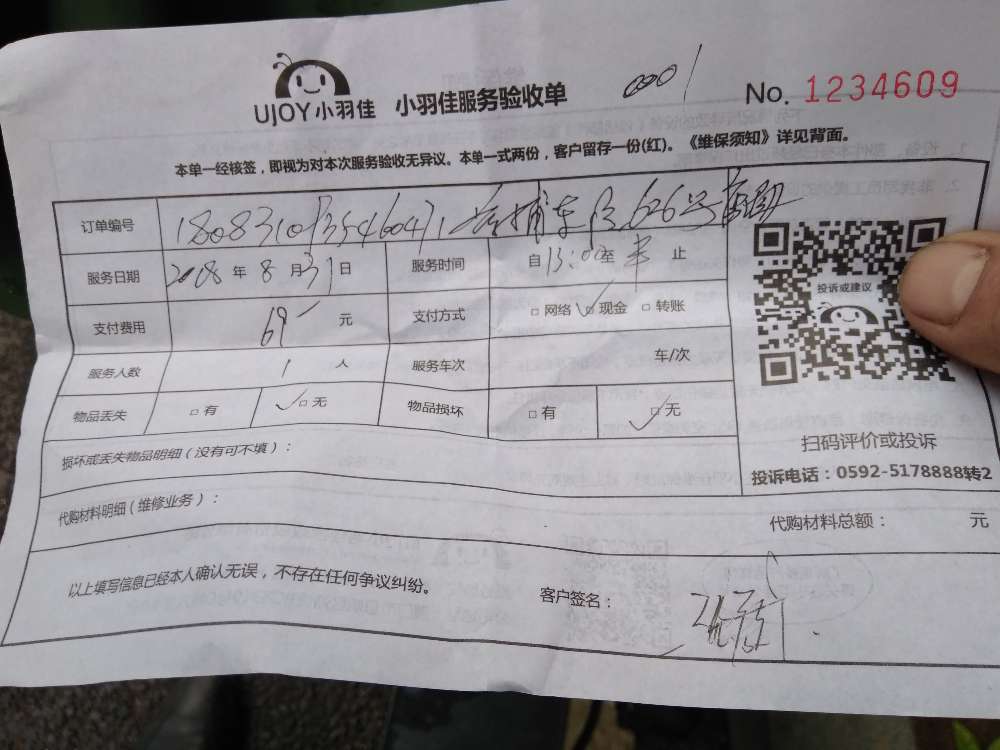 UJOY小羽佳 小羽佳服务验收单 0001 No. 1234609
本单一经核签，即视为对本次服务验收无异议。本单一式两份，客户留存一份(红)。《维保须知》详见背面。
订单编号 626号
服务日期 2018 年 8 月 31 日 服务时间 自 13:00 至 止
支付费用 69 元 支付方式 □ 网络 ✓□ 现金 □ 转账
服务人数 1 人 服务车次 车/次
物品丢失 □ 有 ✓□ 无 物品损坏 □ 有 ✓□ 无
投诉或建议
扫码评价或投诉
投诉电话：0592-5178888转2
损坏或丢失物品明细（没有可不填）：
代购材料明细（维修业务）： 代购材料总额： 元
以上填写信息已经本人确认无误，不存在任何争议纠纷。 客户签名：